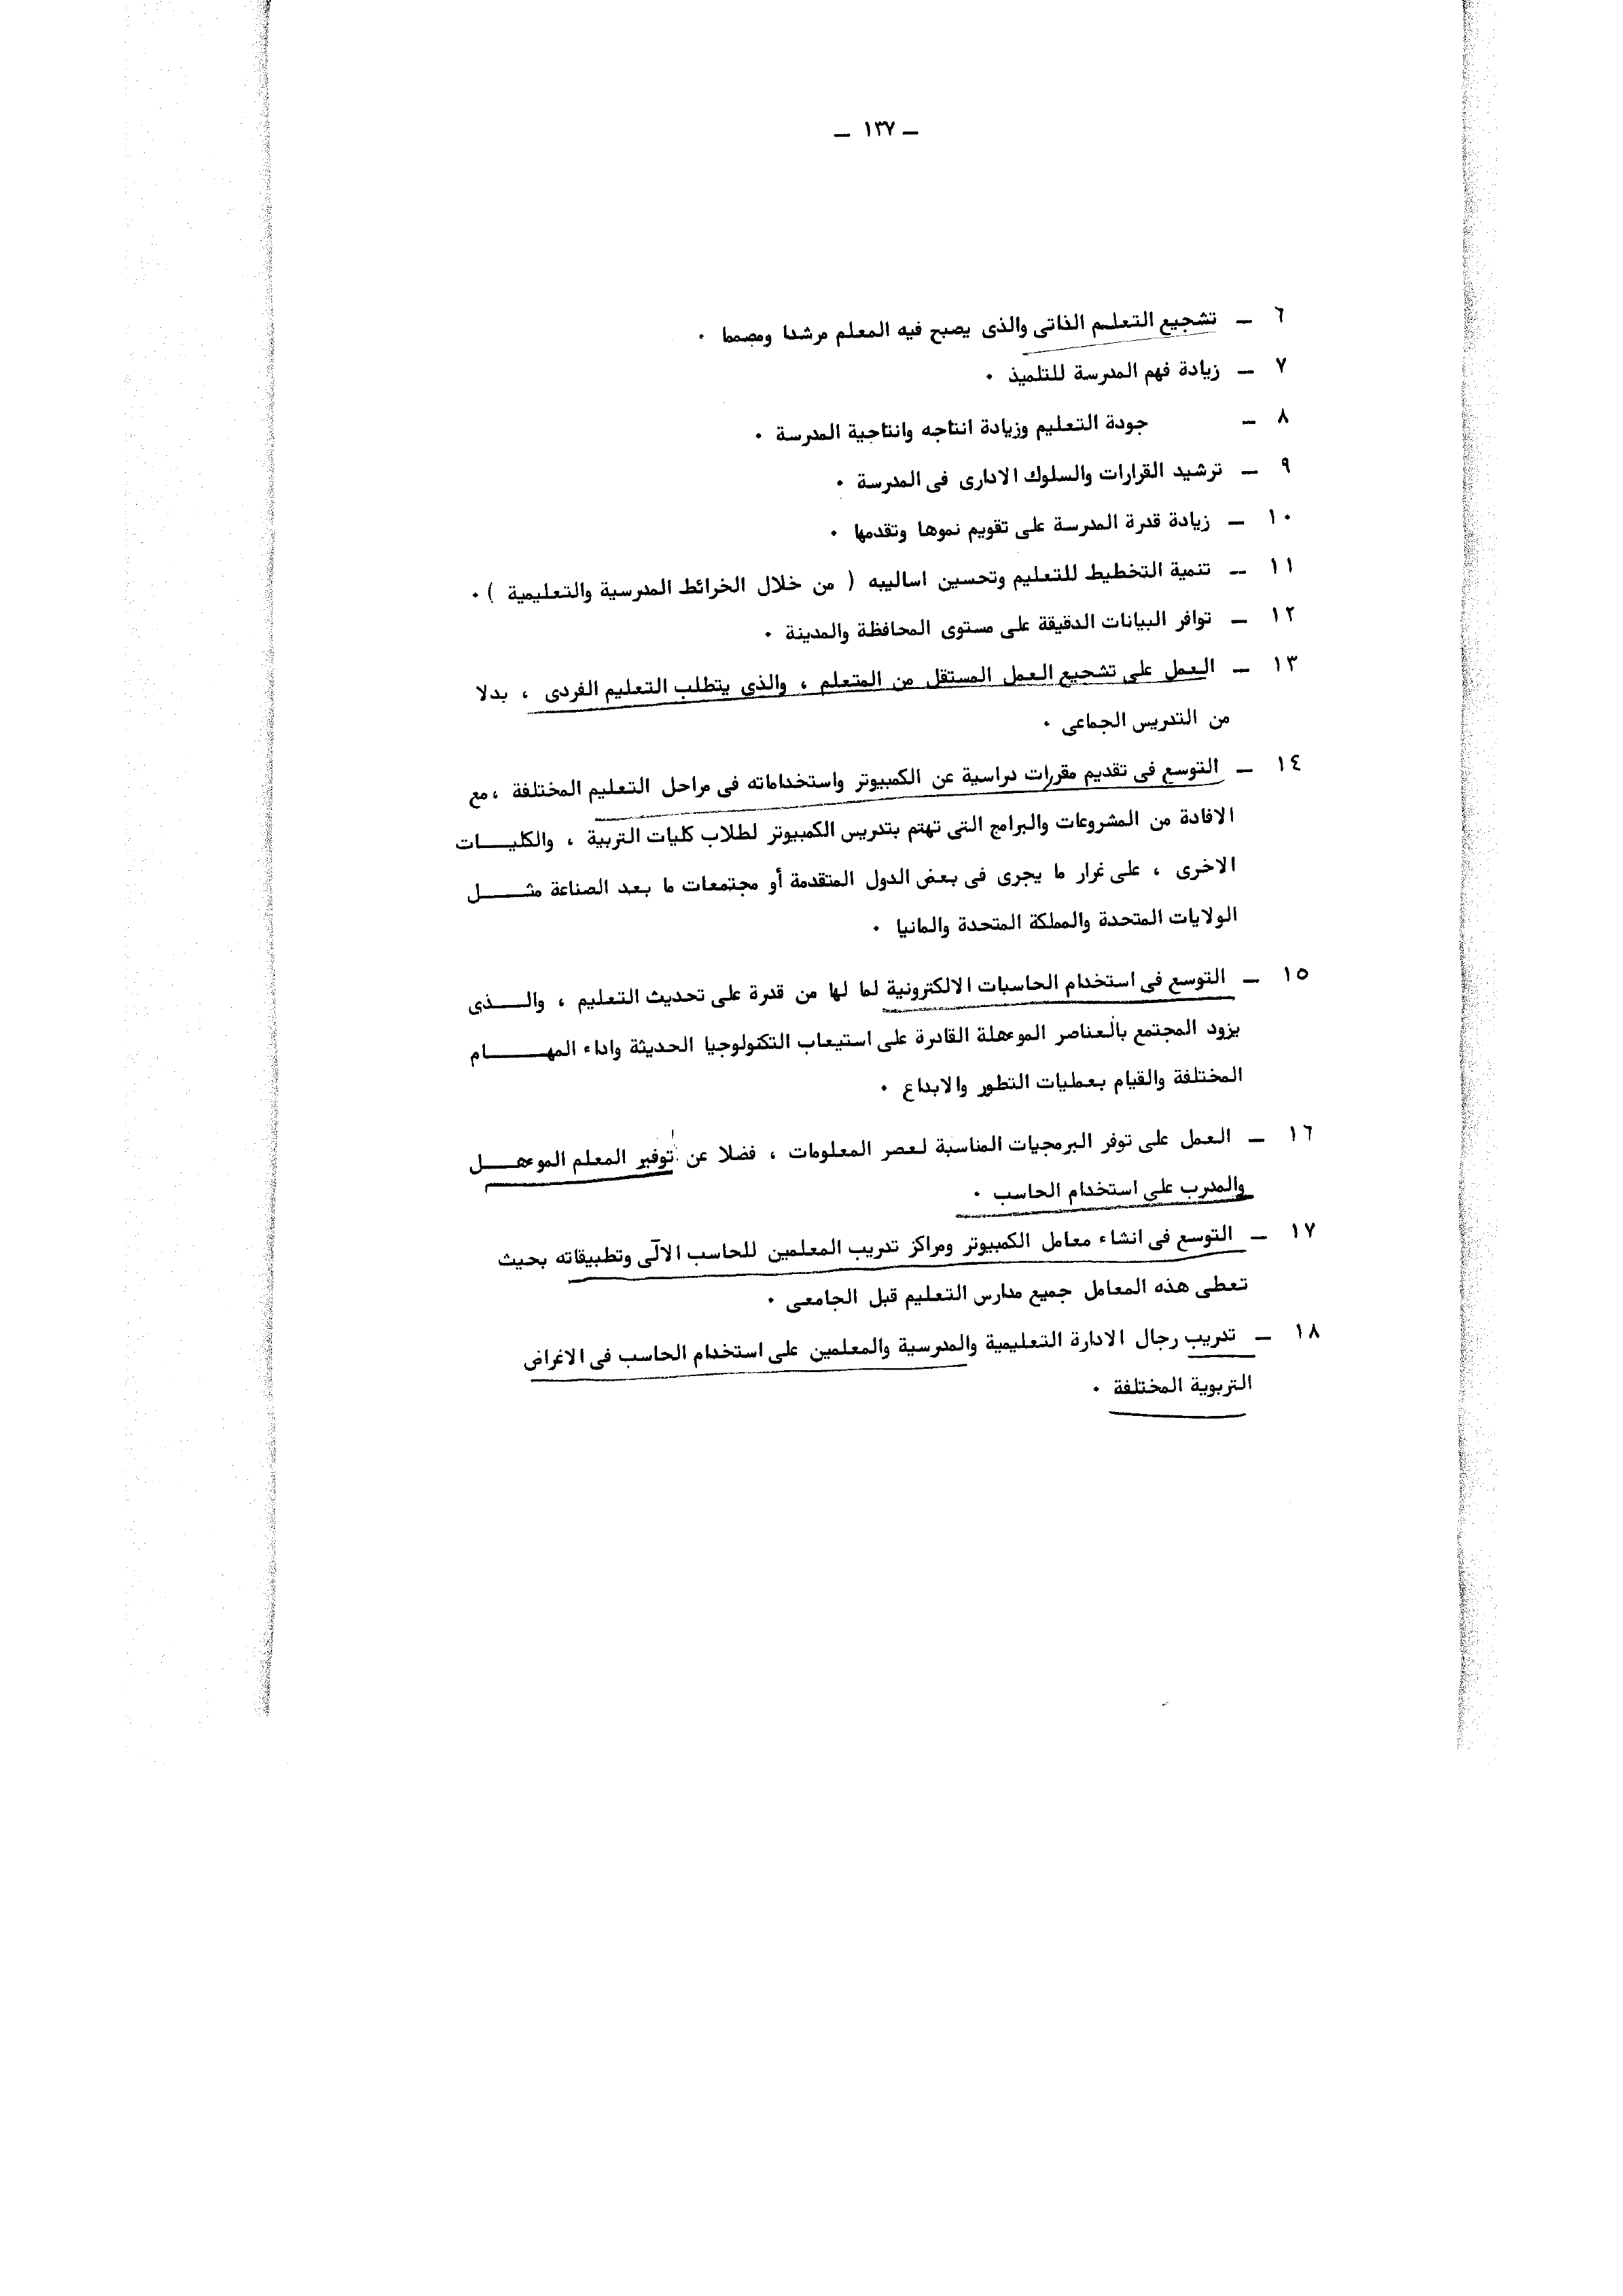 ــ ١٣٧ ــ
٦ ــ تشجيع التعلم الذاتى والذى يصبح فيه المعلم مرشدا ومصمما ٠
٧ ــ زيادة فهم المدرسة للتلميذ ٠
٨ ــ جودة التعليم وزيادة انتاجه وانتاجية المدرسة ٠
٩ ــ ترشيد القرارات والسلوك الادارى فى المدرسة ٠
١٠ ــ زيادة قدرة المدرسة على تقويم نموها وتقدمها ٠
١١ ــ تنمية التخطيط للتعليم وتحسين اساليبه ( من خلال الخرائط المدرسية والتعليمية ) ٠
١٢ ــ توافر البيانات الدقيقة على مستوى المحافظة والمدينة ٠
١٣ ــ العمل على تشجيع العمل المستقل من المتعلم ، والذى يتطلب التعليم الفردى ، بدلا
من التدريس الجماعى ٠
١٤ ــ التوسع فى تقديم مقررات دراسية عن الكمبيوتر واستخداماته فى مراحل التعليم المختلفة ، مع
الافادة من المشروعات والبرامج التى تهتم بتدريس الكمبيوتر لطلاب كليات التربية ، والكليـــات
الاخرى ، على غرار ما يجرى فى بعض الدول المتقدمة أو مجتمعات ما بعد الصناعة مثـــل
الولايات المتحدة والمملكة المتحدة والمانيا ٠
١٥ ــ التوسع فى استخدام الحاسبات الالكترونية لما لها من قدرة على تحديث التعليم ، والـــذى
يزود المجتمع بالعناصر الموءهلة القادرة على استيعاب التكنولوجيا الحديثة واداء المهـــام
المختلفة والقيام بعمليات التطور والابداع ٠
١٦ ــ العمل على توفر البرمجيات المناسبة لعصر المعلومات ، فضلا عن توفير المعلم الموءهـــل
والمدرب على استخدام الحاسب ٠
١٧ ــ التوسع فى انشاء معامل الكمبيوتر ومراكز تدريب المعلمين للحاسب الآلى وتطبيقاته بحيث
تعطى هذه المعامل جميع مدارس التعليم قبل الجامعى ٠
١٨ ــ تدريب رجال الادارة التعليمية والمدرسية والمعلمين على استخدام الحاسب فى الاغراض
التربوية المختلفة ٠